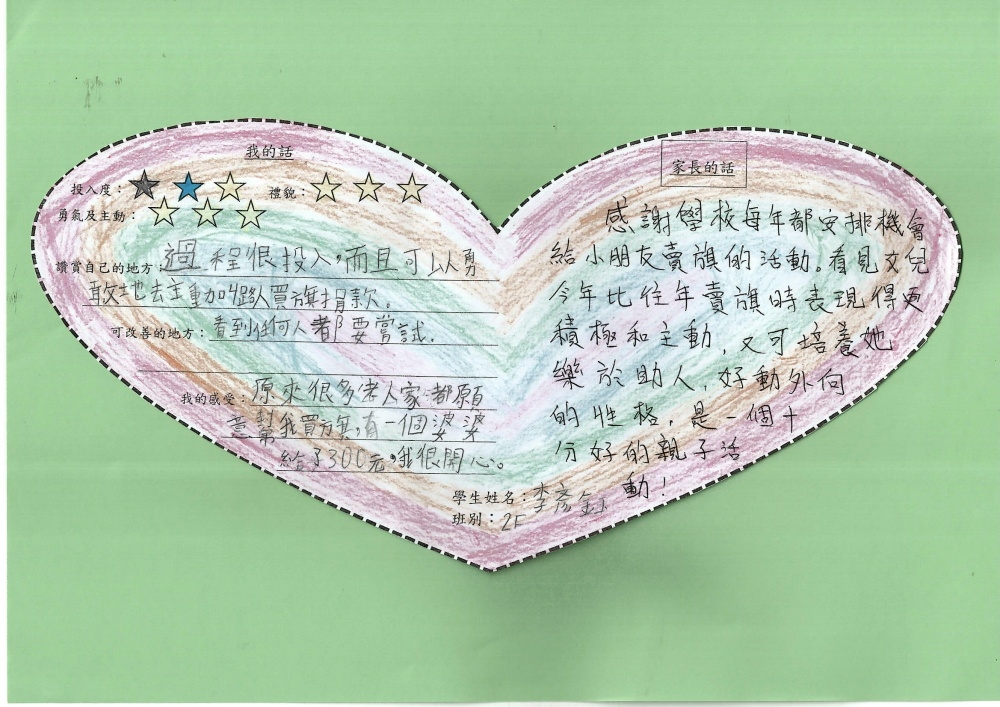 我的話
投入度：
禮貌：
勇氣及主動：
讚賞自己的地方：過程很投入，而且可以勇
敢地去主動加路人買旗捐款。
可改善的地方：看到任何人都要嘗試.
我的感受：原來很多老人家都願
意幫我買旗，有一個婆婆
給了300元，我很開心。
家長的話
感謝學校每年都安排機會
給小朋友賣旗的活動。看見女兒
今年比往年賣旗時表現得更
積極和主動，又可培養她
樂於助人，好動外向
的性格，是一個十
分好的親子活
動！
學生姓名：李彥
班別：2F